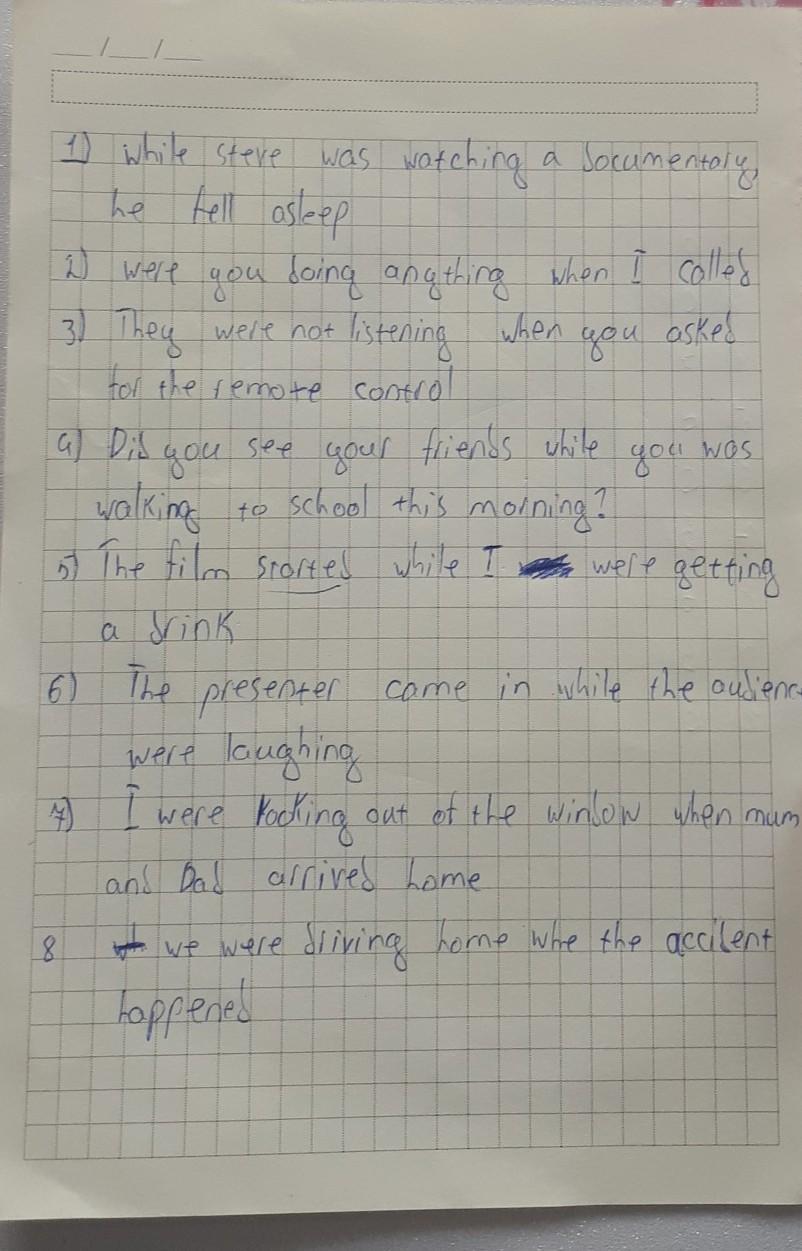 __/__/__
1) While steve was watching a documentary,
he fell asleep
2) were you doing anything when I called
3) They were not listening when you asked
for the remote control
4) Did you see your friends while you was
walking to school this morning?
5) The film started while I were getting
a drink
6) The presenter came in while the audienc
were laughing
7) I were looking out of the window when mum
and Dad arrived home
8 we were driving home whe the accident
happened